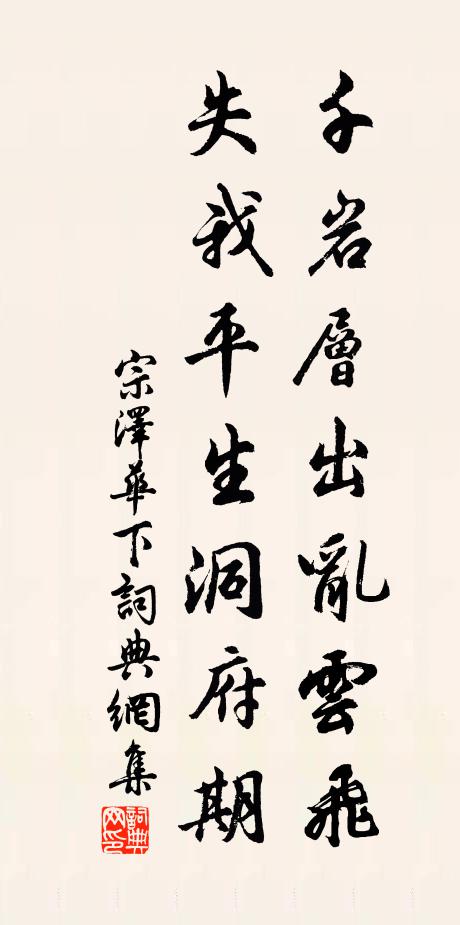 千岩層出亂雲飛
失我平生洞府期
宗澤華下詞典網集
詞典网印